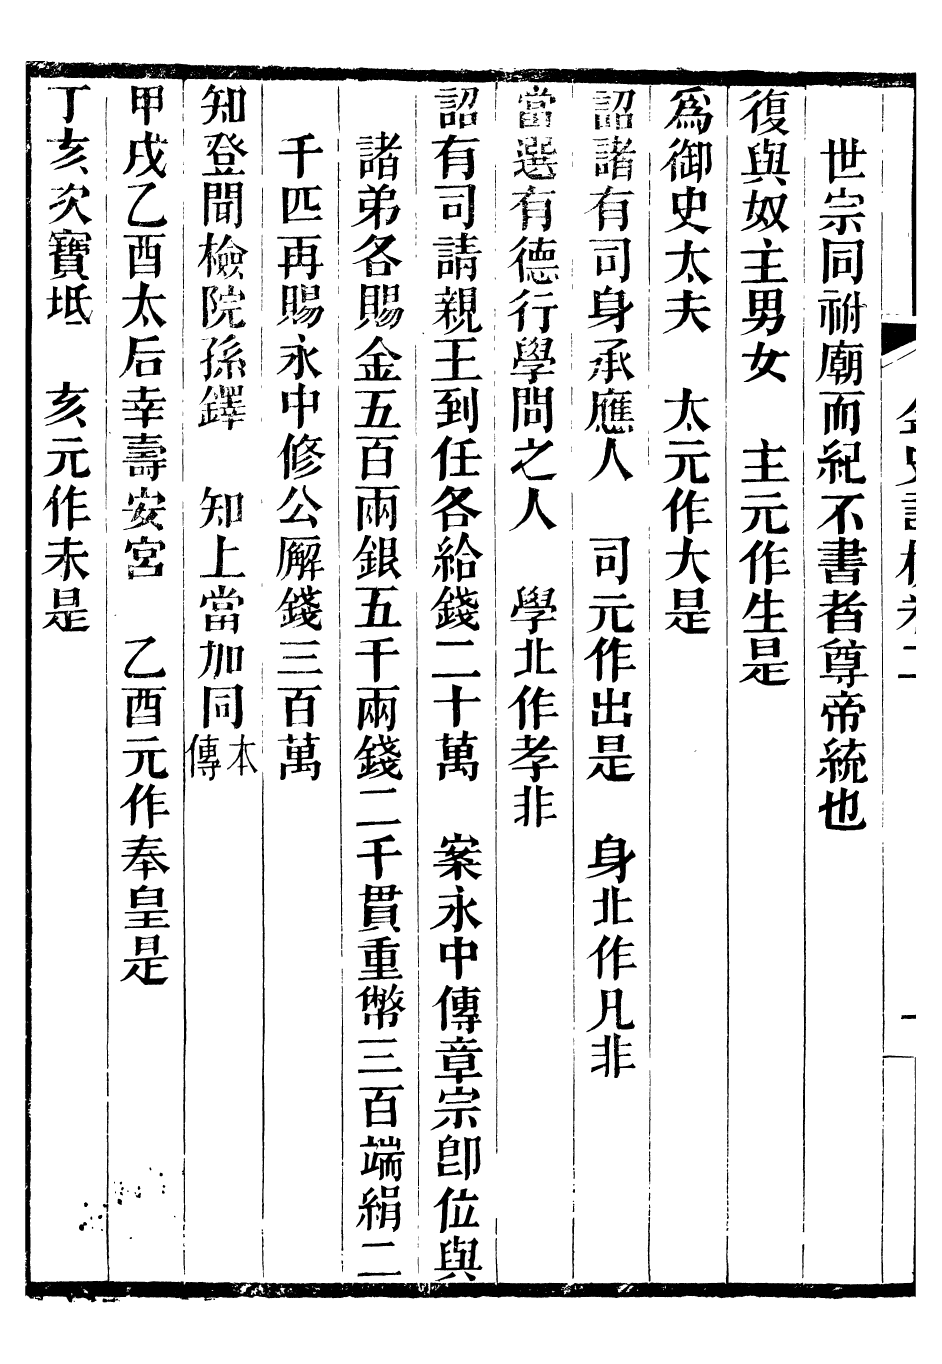 世宗同祔廟而紀不書者尊帝統也
復與奴主男女　主元作生是
爲御史太夫　太元作大是
詔諸有司身承應人　司元作出是　身北作凡非
當選有德行學問之人　學北作孝非
詔有司請親王到任各給錢二十萬　案永中傳章宗卽位與
諸弟各賜金五百兩銀五千兩錢二千貫重幣三百端絹二
千匹再賜永中修公廨錢三百萬
知登聞檢院孫鐸　知上當加同本傳
甲戌乙酉太后幸壽安宮　乙酉元作奉皇是
丁亥次寶坻　亥元作未是